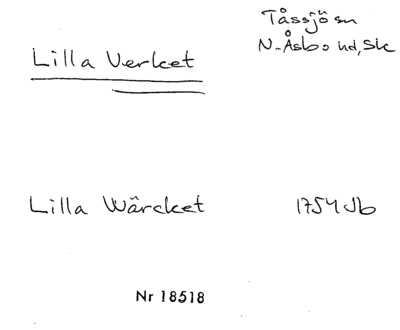 Tåssjö sn
Lilla Verket
N-Åsbo hd, Sk
Lilla Wärcket 1754 Jb
Nr 18518